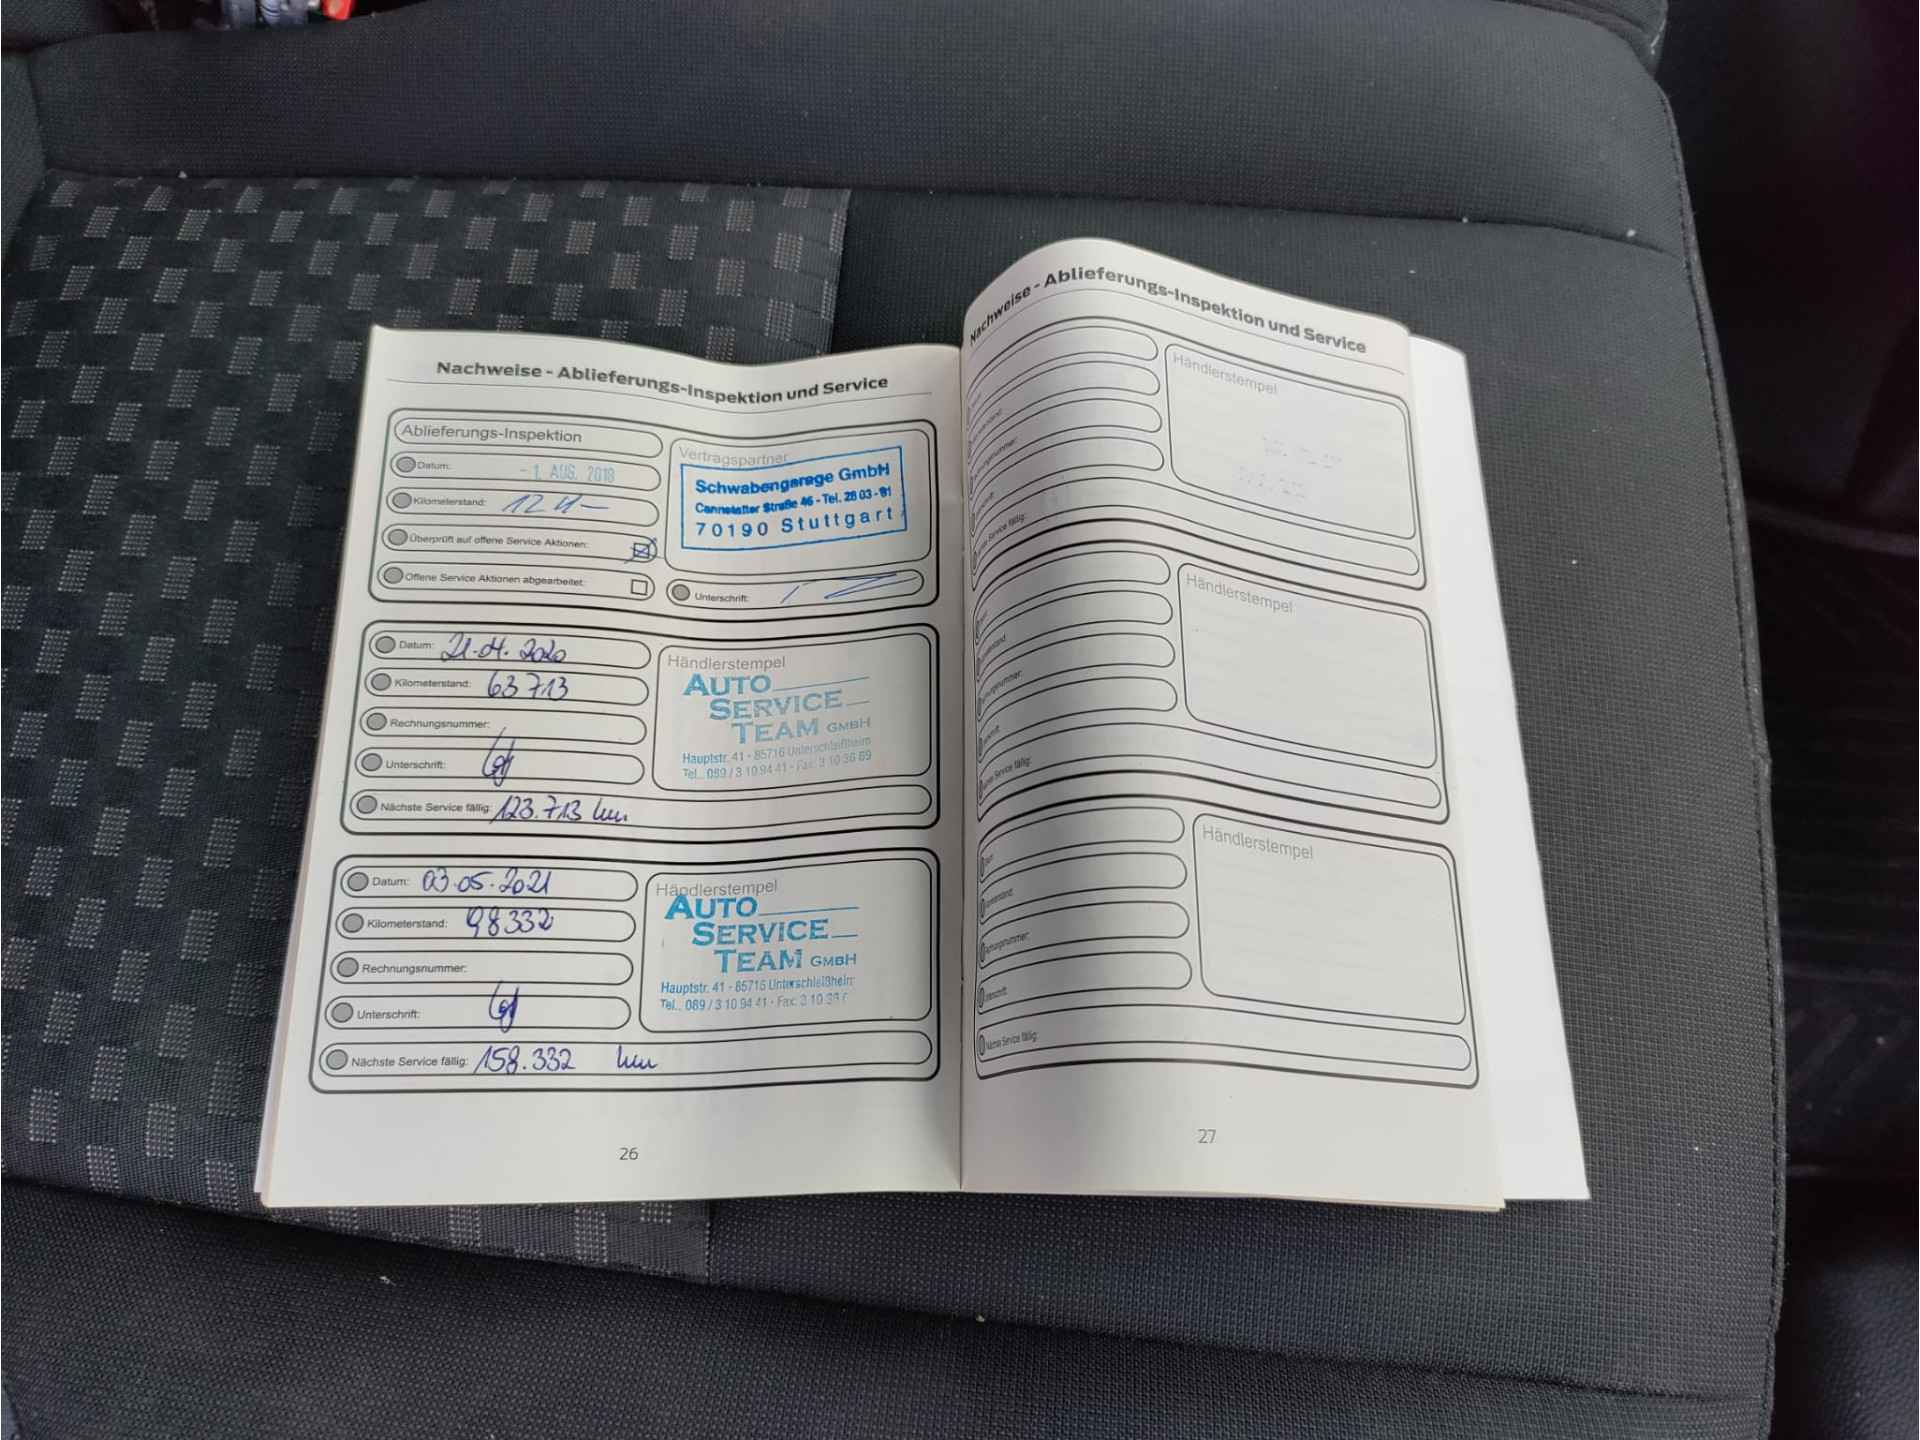 Nachweise - Ablieferungs-Inspektion und Service
Ablieferungs-Inspektion
Datum: - 1. AUG. 2018
Kilometerstand: 12
Überprüft auf offene Service Aktionen:
Offene Service Aktionen abgearbeitet:
Vertragspartner
Schwabengarage GmbH
Cannstatter Straße 46 - Tel. 28 03 - 91
70190 Stuttgart
Unterschrift:
Datum: 21.04.2020
Kilometerstand: 63713
Rechnungsnummer:
Unterschrift:
Nächste Service fällig: 123.713 km
Händlerstempel
AUTO
SERVICE
TEAM GMBH
Hauptstr. 41 - 85716 Unterschleißheim
Tel.. 089 / 3 10 94 41 - Fax: 3 10 36 69
Datum: 03.05.2021
Kilometerstand: 98332
Rechnungsnummer:
Unterschrift:
Nächste Service fällig: 158.332 km
Händlerstempel
AUTO
SERVICE
TEAM GMBH
Hauptstr. 41 - 85716 Unterschleißheim
Tel.. 089 / 3 10 94 41 - Fax: 3 10
26
Nachweise - Ablieferungs-Inspektion und Service
Händlerstempel
Service fällig:
Händlerstempel
Service fällig:
Händlerstempel
Service fällig:
27